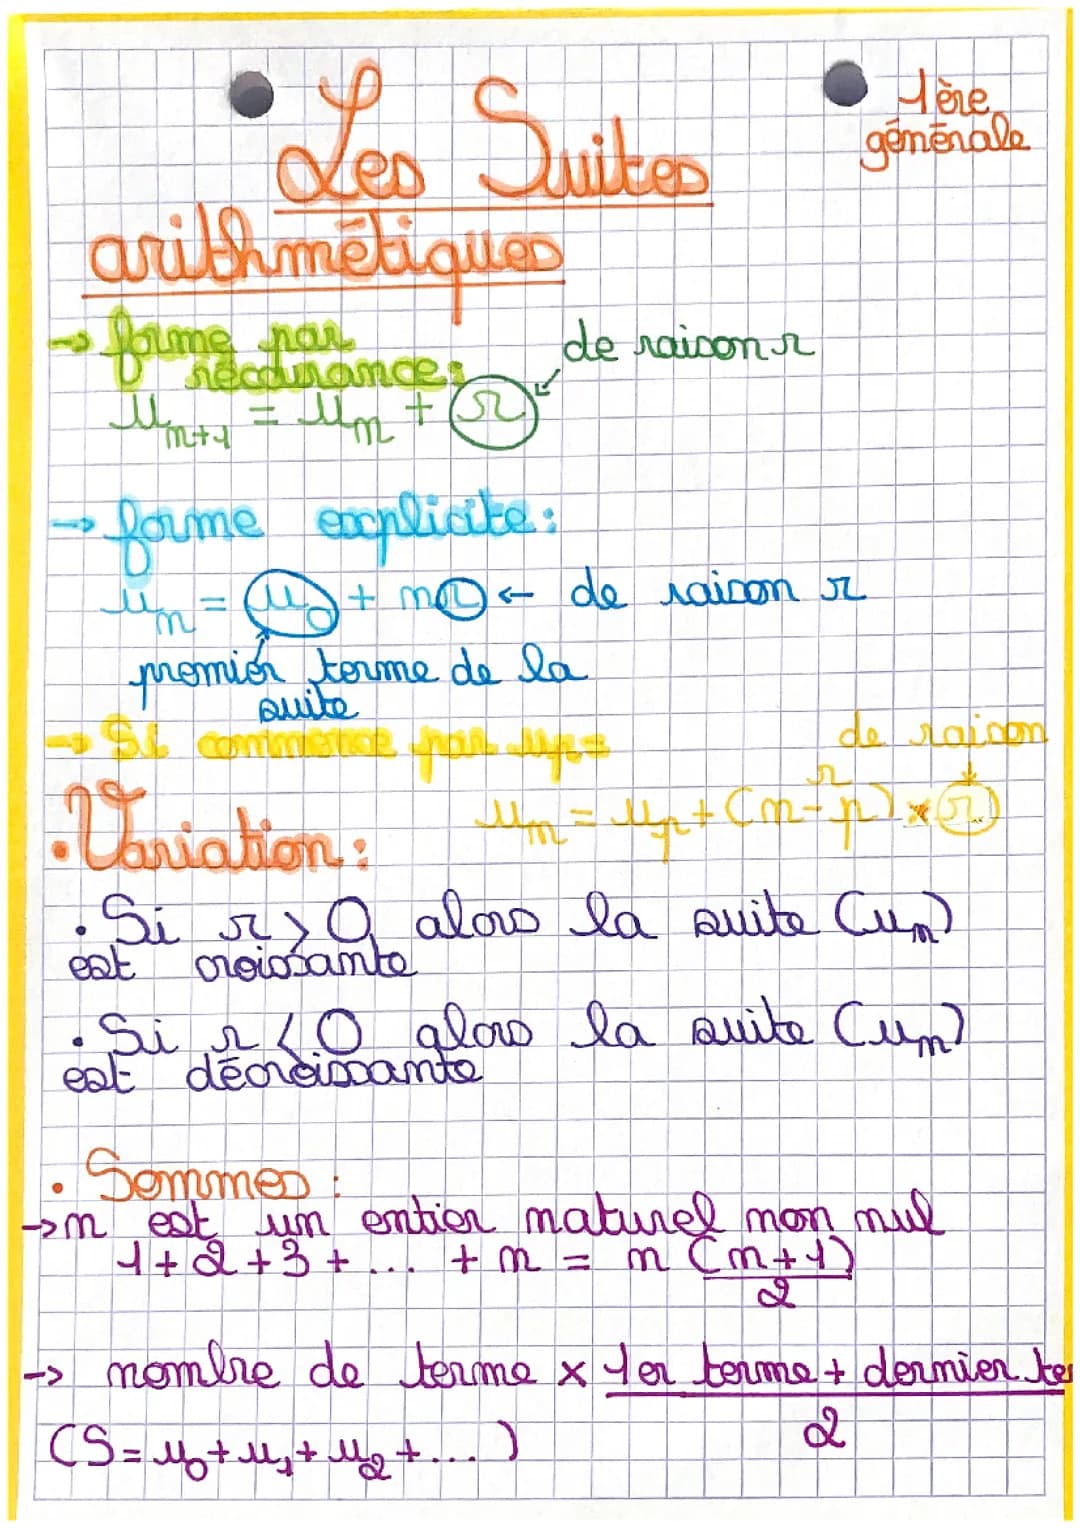 Les Suites
1ère
générale
arithmétiques
→ forme par
récurrance:
de raison r
u_{n+1} = u_n + r
→ forme explicite:
u_n = u_0 + nr ← de raison r
premier terme de la
suite
→ Si commence par up=
de raison
r
u_n = u_p + (n-p) × r
• Variation:
• Si r > 0 alors la suite (u_n)
est croissante
• Si r < 0 alors la suite (u_n)
est décroissante
• Sommes:
→ n est un entier naturel non nul
1+2+3+... + n = n (n+1)
2
→ nombre de terme × 1er terme + dernier te
2
(S = u_0 + u_1 + u_2 + ...)